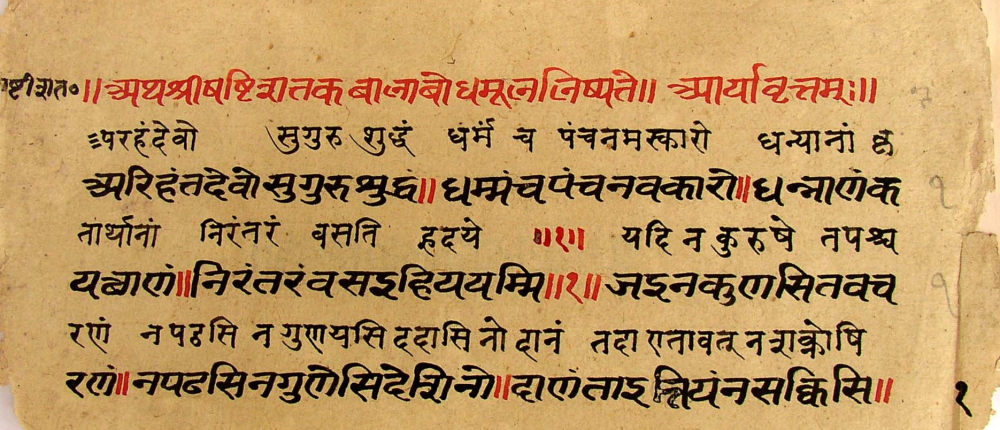 ॥ अथ श्री षष्टिशतक बालाबोध मूल लिष्यते ॥ आर्यावृत्तम्ः ॥
सुगुरु शुद्धं धर्मं च पंचनमस्कारो धन्यानां
अरिहंतदेवो सुगुरु सुद्धं ॥ धम्मंच पंचनवकारो ॥ धन्नाणंक
तार्थानां निरंतरं वसति हृदये ॥१॥ यदि न कुरुषे तपश्च
यत्थाणं ॥ निरंतरं वसइ हिययम्मि ॥१॥ जइ न कुणसि तवच
रणं न पठसि न गुणयसि ददासि नो दानं तदा एतावत् न शक्नोषि
रणं ॥ न पढसि न गुणेसि देसि नो ॥ दाणं ता इत्तियं न सक्किसि ॥
१